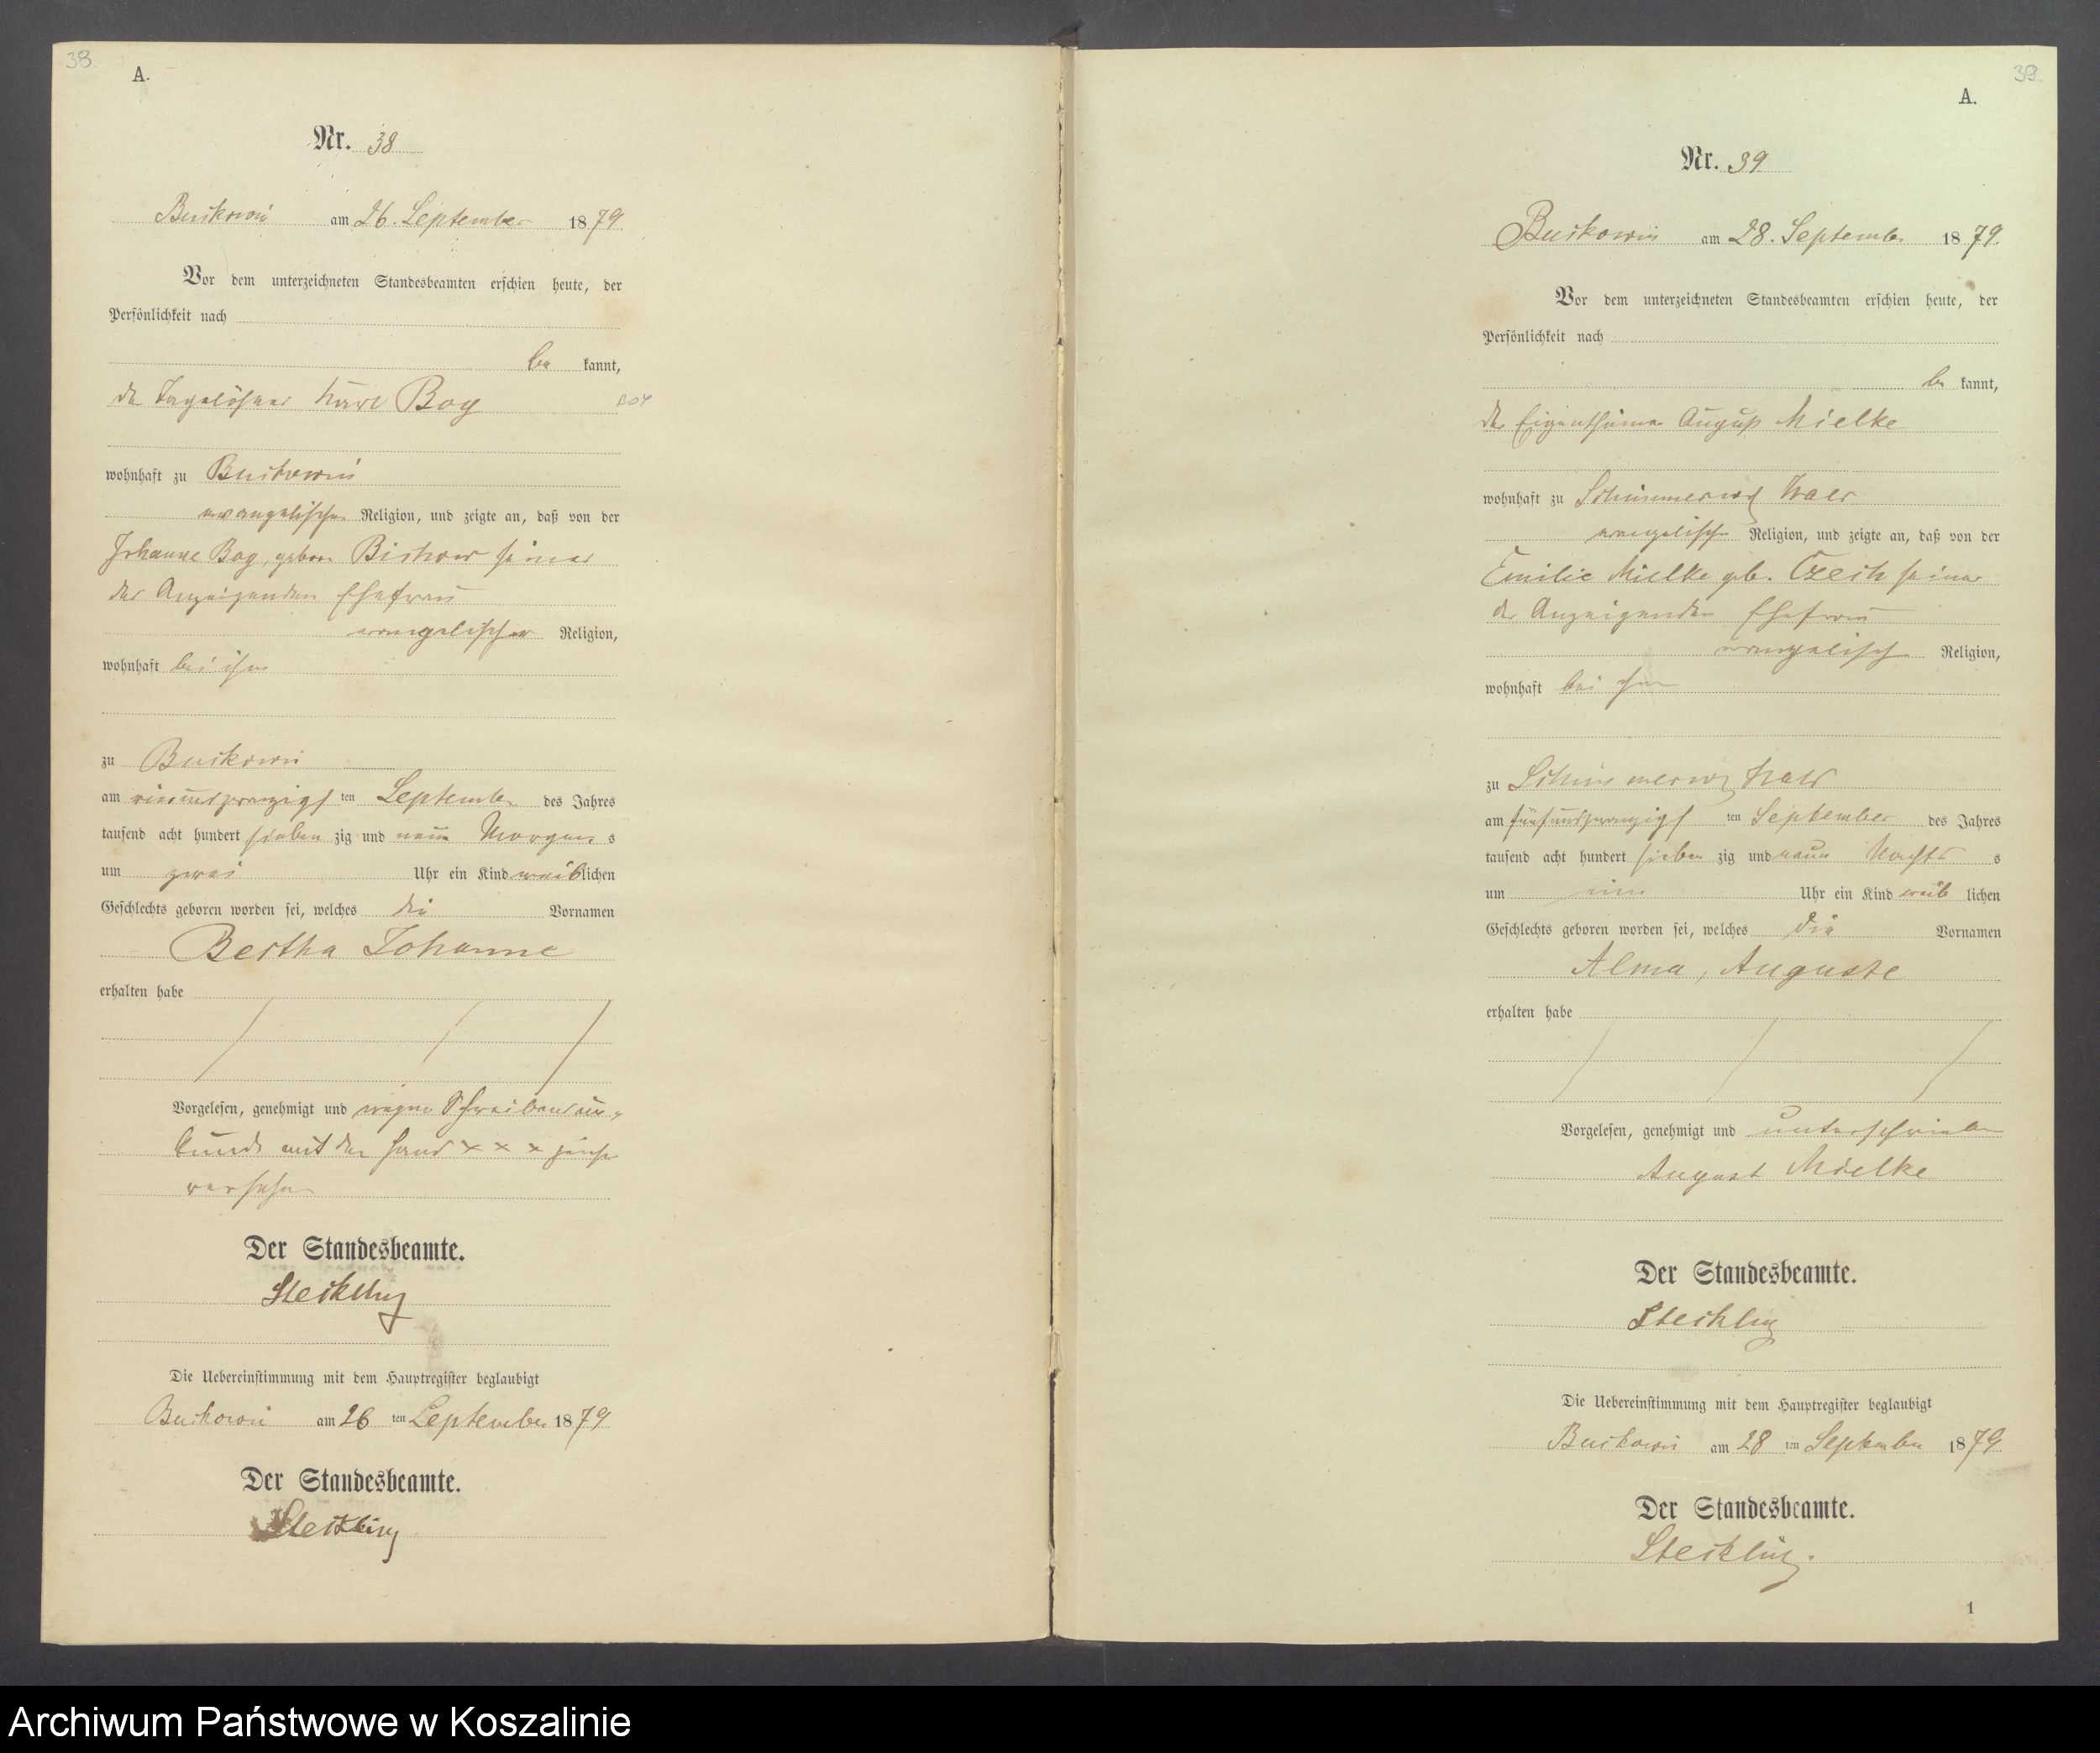 38.
A.
Nr. 38
Buckowin am 26. September 1879
Vor dem unterzeichneten Standesbeamten erschien heute, der
Persönlichkeit nach
be kannt,
der Tagelöhner Karl Boy
BOY
wohnhaft zu Buckowin
evangelischer Religion, und zeigte an, daß von der
Johanne Boy, geboren seiner
des Anzeigenden Ehefrau
evangelischer Religion,
wohnhaft bei ihm
zu Buckowin
am einundzwanzigsten September des Jahres
tausend acht hundert siebenzig und neun Morgens
um zwei Uhr ein Kind weiblichen
Geschlechts geboren worden sei, welches die Vornamen
Bertha Johanne
erhalten habe
Vorgelesen, genehmigt und wegen Schreibensun-
kunde mit der Hand x x x
versehen
Der Standesbeamte.
Steckling
Die Uebereinstimmung mit dem Hauptregister beglaubigt
Buckowin am 26 ten September 1879
Der Standesbeamte.
Steckling
39.
A.
Nr. 39
Buckowin am 28. September 1879.
Vor dem unterzeichneten Standesbeamten erschien heute, der
Persönlichkeit nach
be kannt,
der Eigenthümer August Mielke
wohnhaft zu
evangelischer Religion, und zeigte an, daß von der
Emilie Mielke geb. Czech seiner
des Anzeigenden Ehefrau
evangelisch Religion,
wohnhaft bei ihm
zu
am fünfundzwanzigsten September des Jahres
tausend acht hundert sieben zig und neun Nachts
um ein Uhr ein Kind weib lichen
Geschlechts geboren worden sei, welches die Vornamen
Alma, Auguste
erhalten habe
Vorgelesen, genehmigt und unterschrieben
August Mielke
Der Standesbeamte.
Steckling
Die Uebereinstimmung mit dem Hauptregister beglaubigt
Buckowin am 28 ten September 1879
Der Standesbeamte.
Steckling.
1
Archiwum Państwowe w Koszalinie